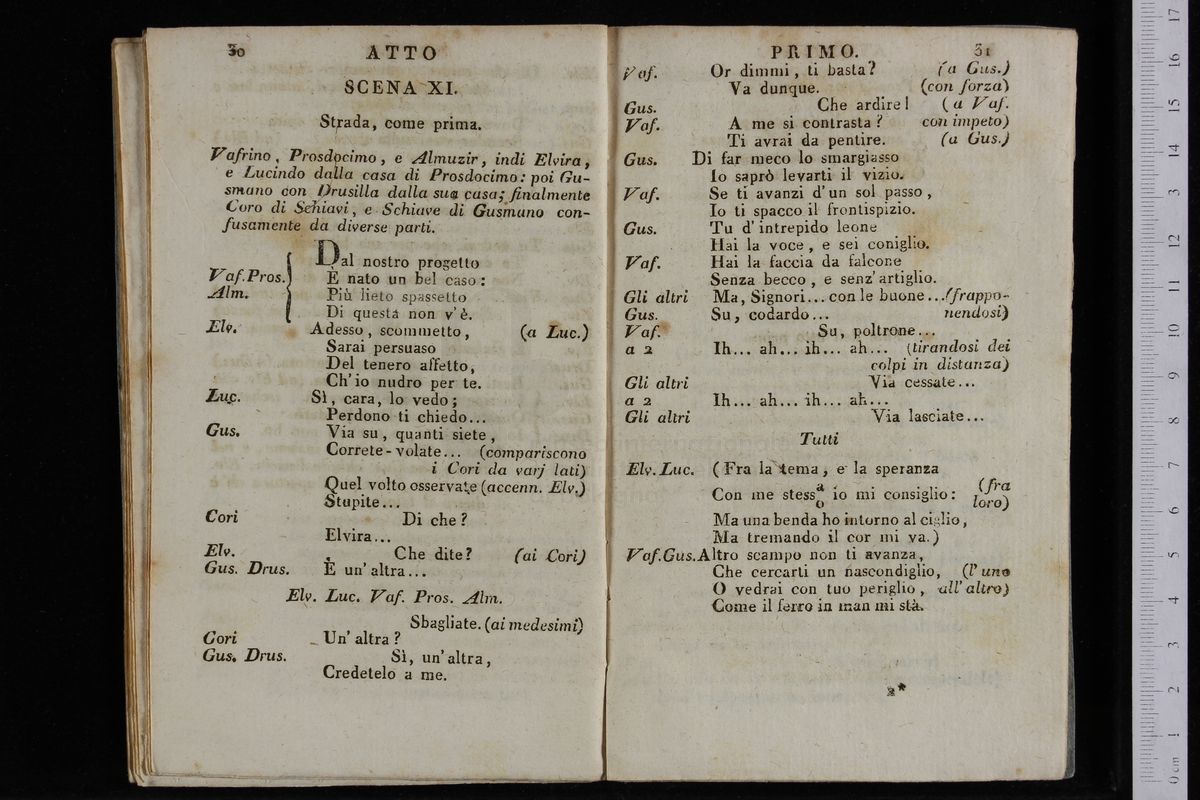 30 ATTO
SCENA XI.
Strada, come prima.
Vafrino, Prosdocimo, e Almuzir, indi Elvira,
e Lucindo dalla casa di Prosdocimo: poi Gu-
smano con Drusilla dalla sua casa; finalmente
Coro di Schiavi, e Schiave di Gusmano con-
fusamente da diverse parti.
Dal nostro progetto
Vaf. Pros. È nato un bel caso:
Alm. Più lieto spassetto
Di questa non v'è.
Elv. Adesso, scommetto, (a Luc.)
Sarai persuaso
Del tenero affetto,
Ch'io nudro per te.
Luc. Sì, cara, lo vedo;
Perdono ti chiedo...
Gus. Via su, quanti siete,
Correte-volate... (compariscono
i Cori da varj lati)
Quel volto osservate (accenn. Elv.)
Stupite...
Cori Di che?
Elvira...
Elv. Che dite? (ai Cori)
Gus. Drus. È un'altra...
Elv. Luc. Vaf. Pros. Alm.
Sbagliate. (ai medesimi)
Cori Un'altra?
Gus. Drus. Sì, un'altra,
Credetelo a me.
PRIMO. 31
Vaf. Or dimmi, ti basta? (a Gus.)
Va dunque. (con forza)
Gus. Che ardire! (a Vaf.
Vaf. A me si contrasta? con impeto)
Ti avrai da pentire. (a Gus.)
Gus. Di far meco lo smargiasso
Io saprò levarti il vizio.
Vaf. Se ti avanzi d'un sol passo,
Io ti spacco il frontispizio.
Gus. Tu d'intrepido leone
Hai la voce, e sei coniglio.
Vaf. Hai la faccia da falcone
Senza becco, e senz'artiglio.
Gli altri Ma, Signori... con le buone... (frappo-
Gus. Su, codardo... nendosi)
Vaf. Su, poltrone...
a 2 Ih... ah... ih... ah... (tirandosi dei
colpi in distanza)
Gli altri Via cessate...
a 2 Ih... ah... ih... ah...
Gli altri Via lasciate...
Tutti
Elv. Luc. (Fra la tema, e la speranza
Con me stess a o io mi consiglio: (fra loro)
Ma una benda ho intorno al ciglio,
Ma tremando il cor mi va.)
Vaf. Gus. Altro scampo non ti avanza,
Che cercarti un nascondiglio, (l'uno
O vedrai con tuo periglio, all'altro)
Come il ferro in man mi stà.
2*